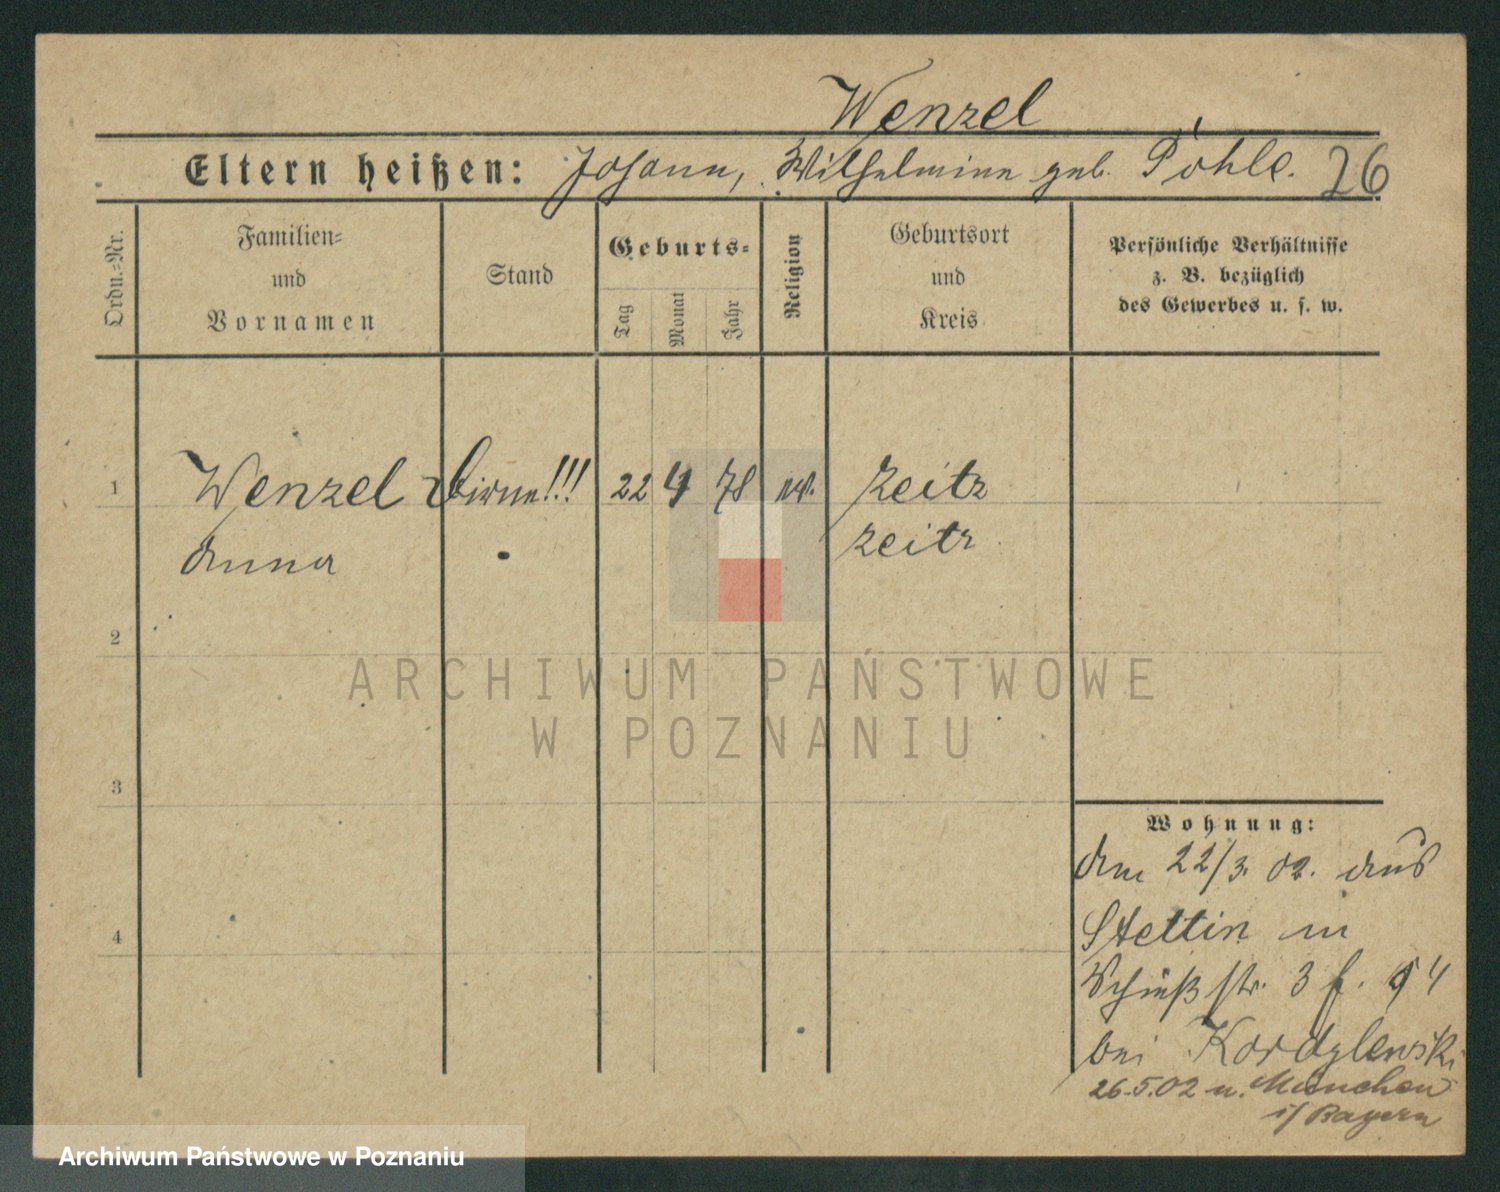 Wenzel
Eltern heißen: Johann, Wilhelmine geb. Pöhle. 26
Ordn.=Nr.
Familien=
und
Vornamen
Stand
Geburts=
Tag
Monat
Jahr
Religion
Geburtsort
und
Kreis
Persönliche Verhältnisse
z. B. bezüglich
des Gewerbes u. s. w.
1 Wenzel Dirne!!! 22 4 78 ev. Zeitz
Anna Zeitz
2
ARCHIWUM PAŃSTWOWE
W POZNANIU
3
Wohnung:
Am 22/3. 02. aus
Stettin in
Schießstr. 3 4
bei Kordylewski
26.5.02 n. München
i/ Bayern
4
Archiwum Państwowe w Poznaniu